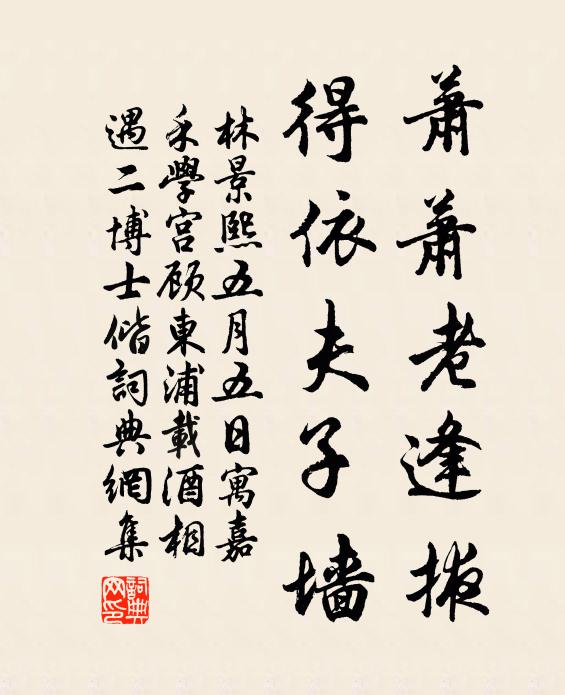 蕭蕭老逢掖
得依夫子墙
林景熙五月五日寓嘉
禾學宮顾東浦載酒相
遇二博士偕詞典網集
詞典网印